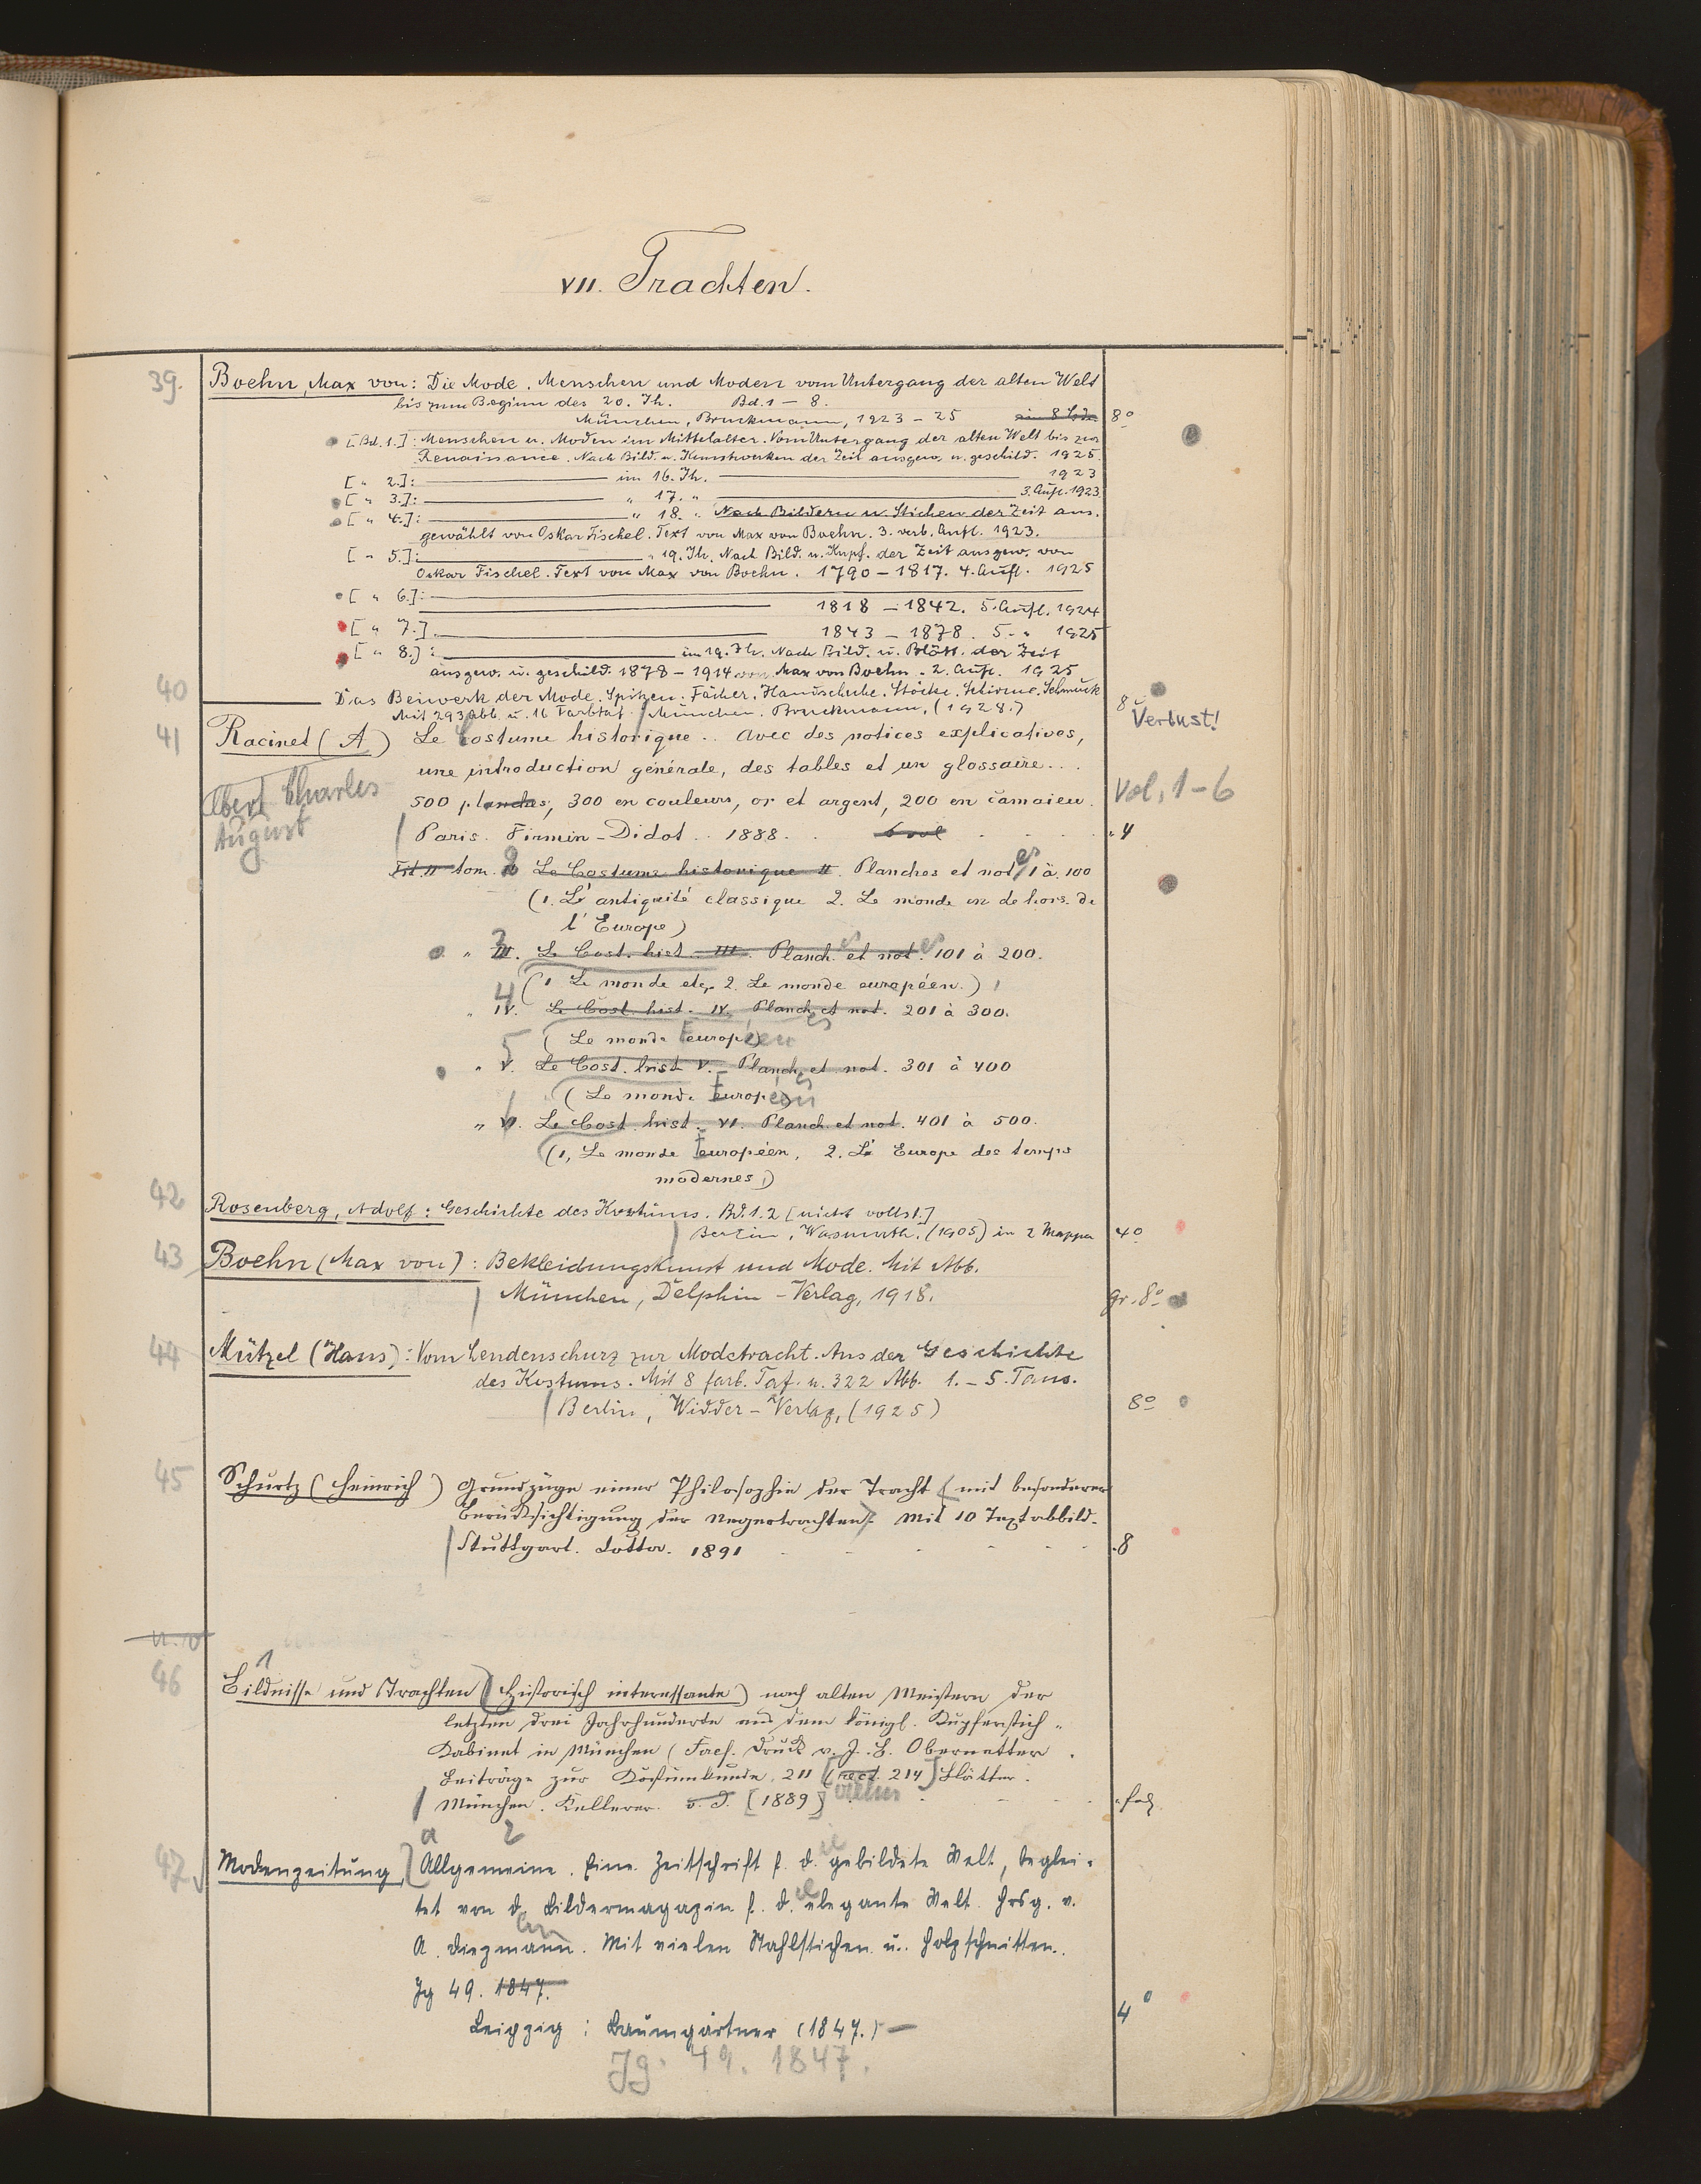 VII. Trachten.
39. Boehn, Max von: Die Mode. Menschen und Moden vom Untergang der alten Welt
bis zum Beginn des 20. Jh. Bd. 1 – 8.
München, Bruckmann, 1923 – 25 in 8 Bdn 8°
[Bd. 1.]: Menschen u. Moden im Mittelalter. Vom Untergang der alten Welt bis zur
Renaissance. Nach Bild. u. Kunstwerken der Zeit ausgew. u. geschild. 1925.
[ " 2.]: im 16. Jh. 1923
[ " 3.]: " 17. " 3. Aufl. 1923.
[ " 4.]: " 18. " Nach Bildern u. Stichen der Zeit aus-
gewählt von Oskar Fischel. Text von Max von Boehn. 3. verb. Aufl. 1923.
[ " 5.]: " 19. Jh. Nach Bild. u. Kupf. der Zeit ausgew. von
Oskar Fischel. Text von Max von Boehn. 1790 – 1817. 4. Aufl. 1925
[ " 6.]: 1818 – 1842. 5. Aufl. 1924
[ " 7.] 1843 – 1878. 5. " 1925
[ " 8.]: im 19. Jh. Nach Bild. u. Blätt. der Zeit
ausgew. u. geschild. 1878 – 1914 von Max von Boehn. 2. Aufl. 1925
40 Das Beiwerk der Mode. Spitzen. Fächer. Handschuhe. Stöcke. Schirme. Schmuck
Mit 293 Abb. u. 16 Farbtaf. München. Bruckmann, (1928.) 8° Verlust!
41 Racinet (A) Le Costume historique.. Avec des notices explicatives,
une introduction générale, des tables et un glossaire...
Albert Charles August
500 planches, 300 en couleurs, or et argent, 200 en camaieu. Vol. 1-6
Paris. Firmin-Didot.. 1888. 6 vol 4
Tit. II tom. 2 Le Costume historique II. Planches et notes 1 à 100
(1. L'antiquité classique 2. Le monde en dehors de
l'Europe)
" III. 3 Le Cost. hist. III. Planch. et not. es 101 à 200.
(1 Le monde etc. 2. Le monde européen.)
" IV. 4 Le Cost. hist. IV. Planch. et not. 201 à 300.
(Le monde européen)
" V. 5 Le Cost. hist V. Planch. et not. 301 à 400
(Le monde Européen)
" VI. 6 Le Cost. hist. VI. Planch. et not. 401 à 500.
(1, Le monde européen, 2. L'Europe des temps
modernes)
42 Rosenberg, Adolf: Geschichte des Kostüms. Bd. 1. 2 [nicht vollst.]
Berlin, Wasmuth, (1905) in 2 Mappen 4°
43 Boehn (Max von): Bekleidungskunst und Mode. Mit Abb.
München, Delphin-Verlag, 1918. gr. 8°
44 Mützel (Hans): Vom Lendenschurz zur Modetracht. Aus der Geschichte
des Kostüms. Mit 8 farb. Taf. u. 322 Abb. 1. – 5. Taus.
Berlin, Widder-Verlag, (1925) 8°
45 Schurtz (Heinrich) Grundzüge einer Philosophie der Tracht (mit besonderer
Berücksichtigung der Negertrachten). Mit 10 Textabbild.
Stuttgart. Cotta. 1891 8
46 Bildnisse und Trachten (Historisch interessante) nach alten Meistern der
letzten drei Jahrhunderte aus dem königl. Kupferstich-
Kabinet in München (Facs. Druck v. J. B. Obernetter.
Beiträge zur Kostümkunde. 211 (rect. 214) Blätter.
München. Kellerer. o. J. [1889] fol.
47 Modenzeitung, Allgemeine. Eine Zeitschrift f. d. gebildete Welt, beglei-
tet von d. Bildermagazin f. d. elegante Welt. Hrsg. v.
A. Diezmann. Mit vielen Stahlstichen u. Holzschnitten.
Jg 49. 1847.
Leipzig: Baumgärtner (1847.) – 4°
Jg. 49. 1847.